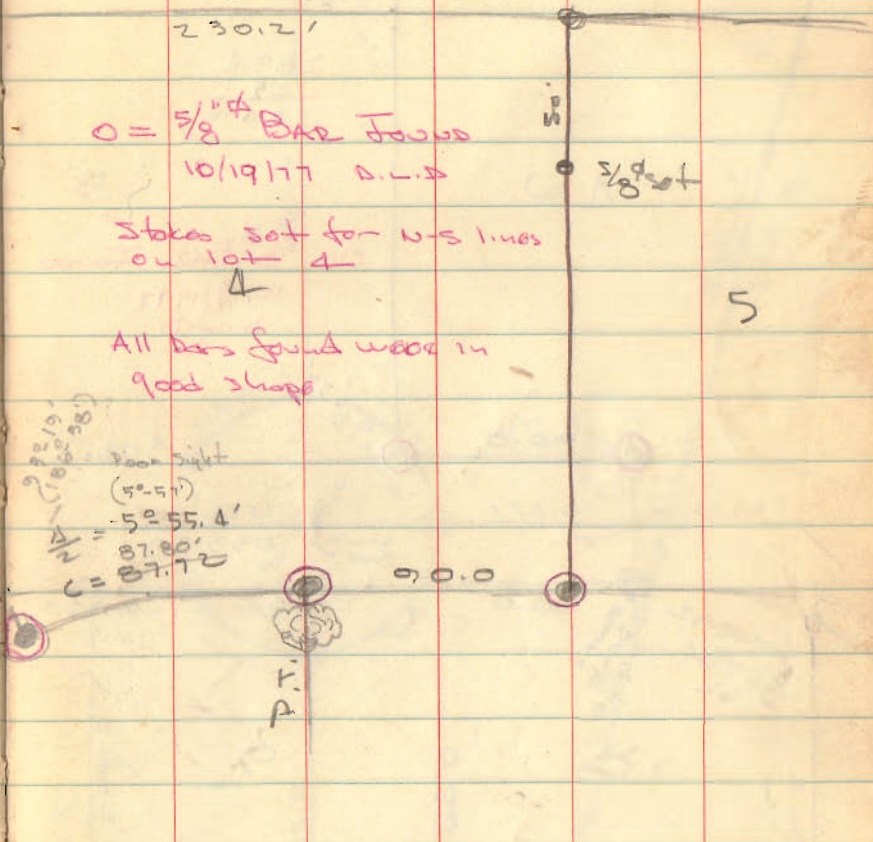 230.2'
50'
O = 5/8"⌀ BAR FOUND
10/19/77 D.L.D
5/8"⌀ set
Stakes set for N-S lines
on lot 4
4
5
All bars found were in
good shape
99°19'
(186°-38')
Poor Sight
(5°-57')
Δ/2 = 5°-55.4'
87.80'
C = 87.72
90.0
P.T.